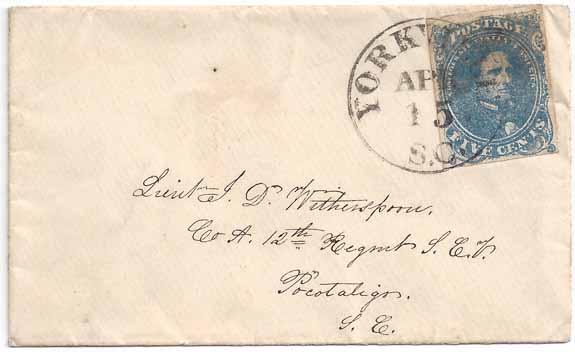 YORKV
AP
15
S.C.
POSTAGE
FIVE CENTS
Lieut J. D. Witherspoon.
Co A. 12th Regmt S. C. V.
Pocotaligo.
S. C.